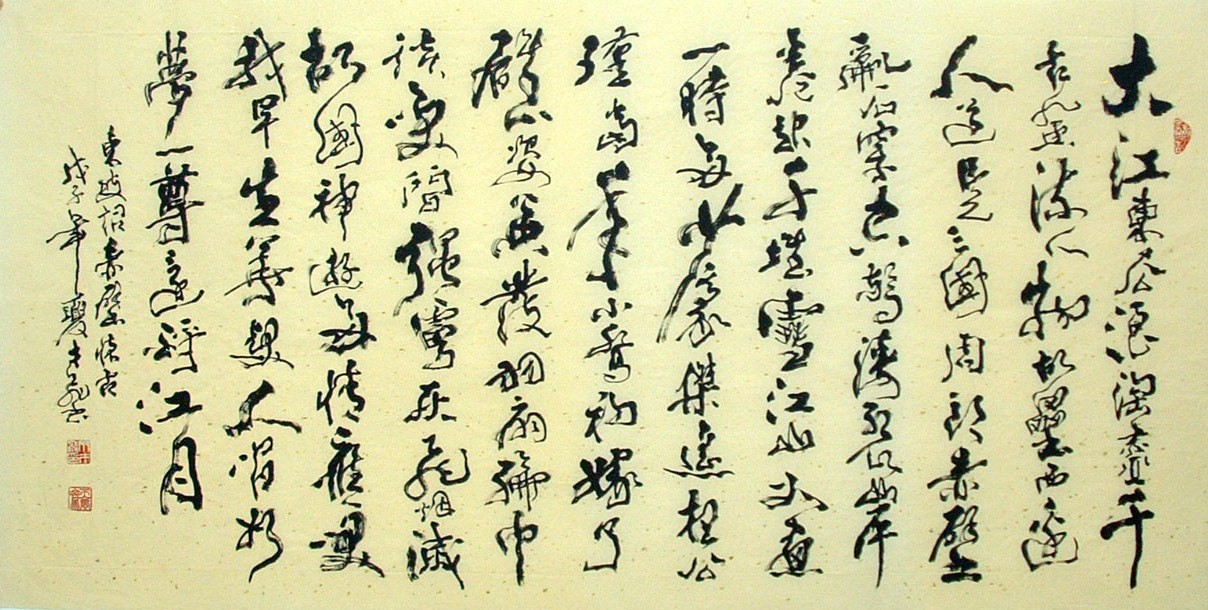 大江東去浪淘盡千
古風流人物故壘西邊
人道是三國周郎赤壁
亂石穿空驚濤岸
卷起千堆雪江山如畫
一時多少豪傑遙想公
瑾當年小喬初嫁了
雄姿英發羽扇綸巾
談笑間強虜灰飛烟滅
故國神遊多情應笑
我早生華髮人間如
夢一尊還酹江月
東坡詞赤壁懷古
戊子年夏書